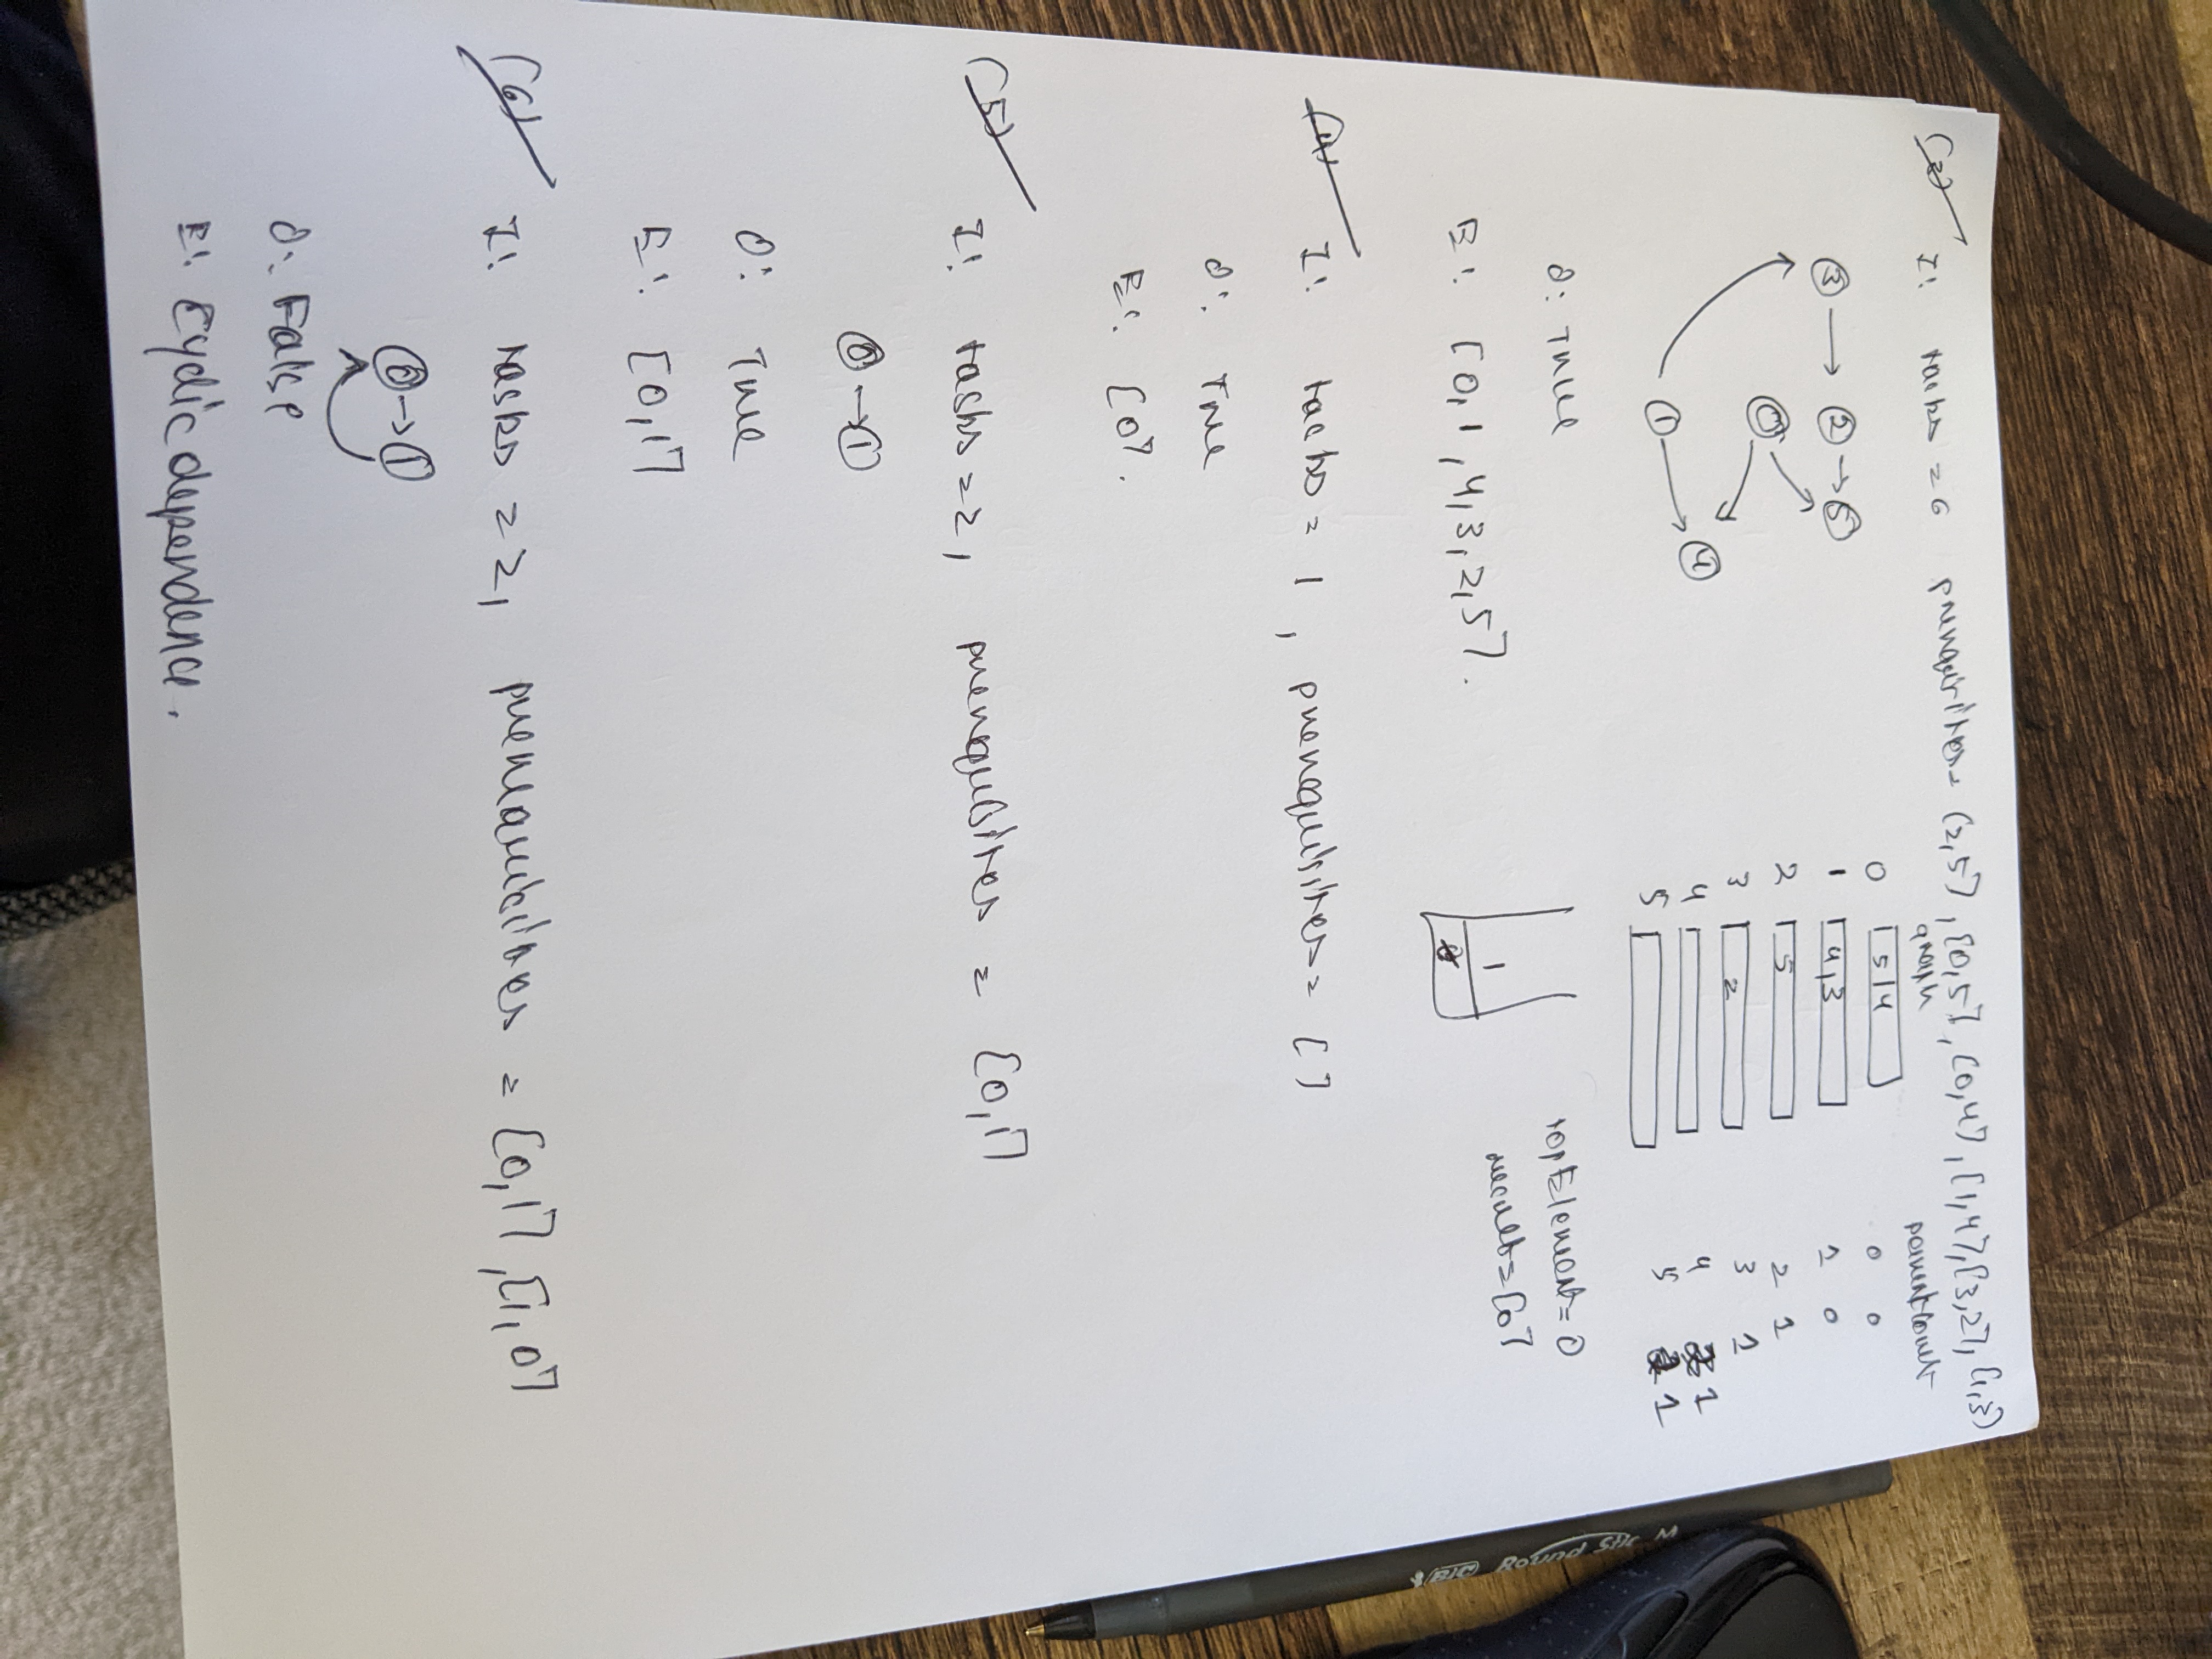 (3) I: tasks = 6 prerequisites = [2,5], [0,5], [0,4], [1,4], [3,2], [1,3]
graph parentcount
③ → ② → ⑤
⓪
① ④
0 5,4
1 4,3
2 5
3 2
4
5
0 0
1 0
2 1
3 1
4 2 1
5 2 1
O: True
topElement = 0
result = [0]
E: [0,1,4,3,2,5].
1
0
(4) I: tasks = 1, prerequisites = []
O: True
E: [0].
(5) I: tasks = 2, prerequisites = [0,1]
⓪→①
O: True
E: [0,1]
(6) I: tasks = 2, prerequisites = [0,1], [1,0]
⓪→①
O: False
E: Cyclic dependence.
BIC Round Stic M